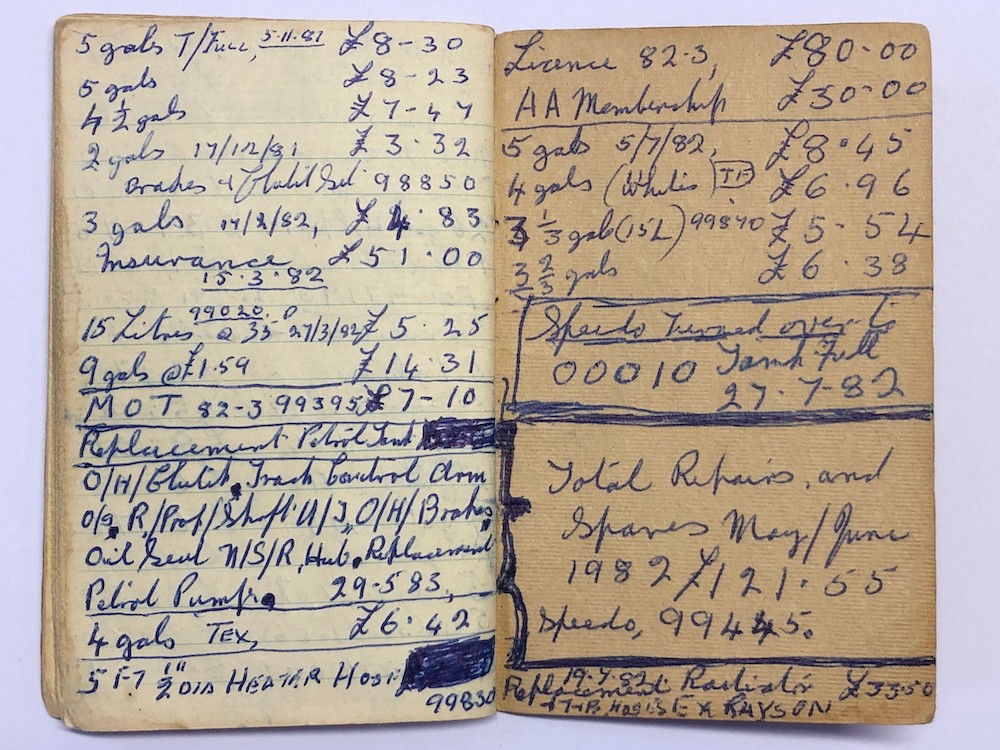 5 gals T/Full, 5-11-81 £8-30
5 gals £8-23
4 1/2 gals £7-47
2 gals 17/12/81 £3.32
Brakes & Clutch 98850
3 gals 14/2/82, £4.83
Insurance £51.00
15.3.82
99020.
15 Litres @ 35 27/3/82 £5.25
9 gals @ £1.59 £14.31
MOT 82-3 99395 £7-10
Replacement Petrol Tank
O/H/Clutch, Track Control Arm
O/S, R/Prop/Shaft U/J, O/H/Brakes,
Oil Seal N/S/R, Hub, Replacement
Petrol Pump. 29-5 83,
4 gals TEX, £6.42
5 FT 1/2" DIA HEATER HOSE
99830
Licence 82-3, £80.00
AA Membership £30-00
5 gals 5/7/82, £8.45
4 gals (Whites) TF £6.96
3 1/3 gals (15L) 99870 £5-54
3 2/3 gals £6.38
Speedo Turned over to
00010 Tank Full
27-7-82
Total Repairs, and
Spares May/June
1982 £121.55
Speedo, 99445.
19.7.82
Replacement Radiator £33.50
EX RAYSON